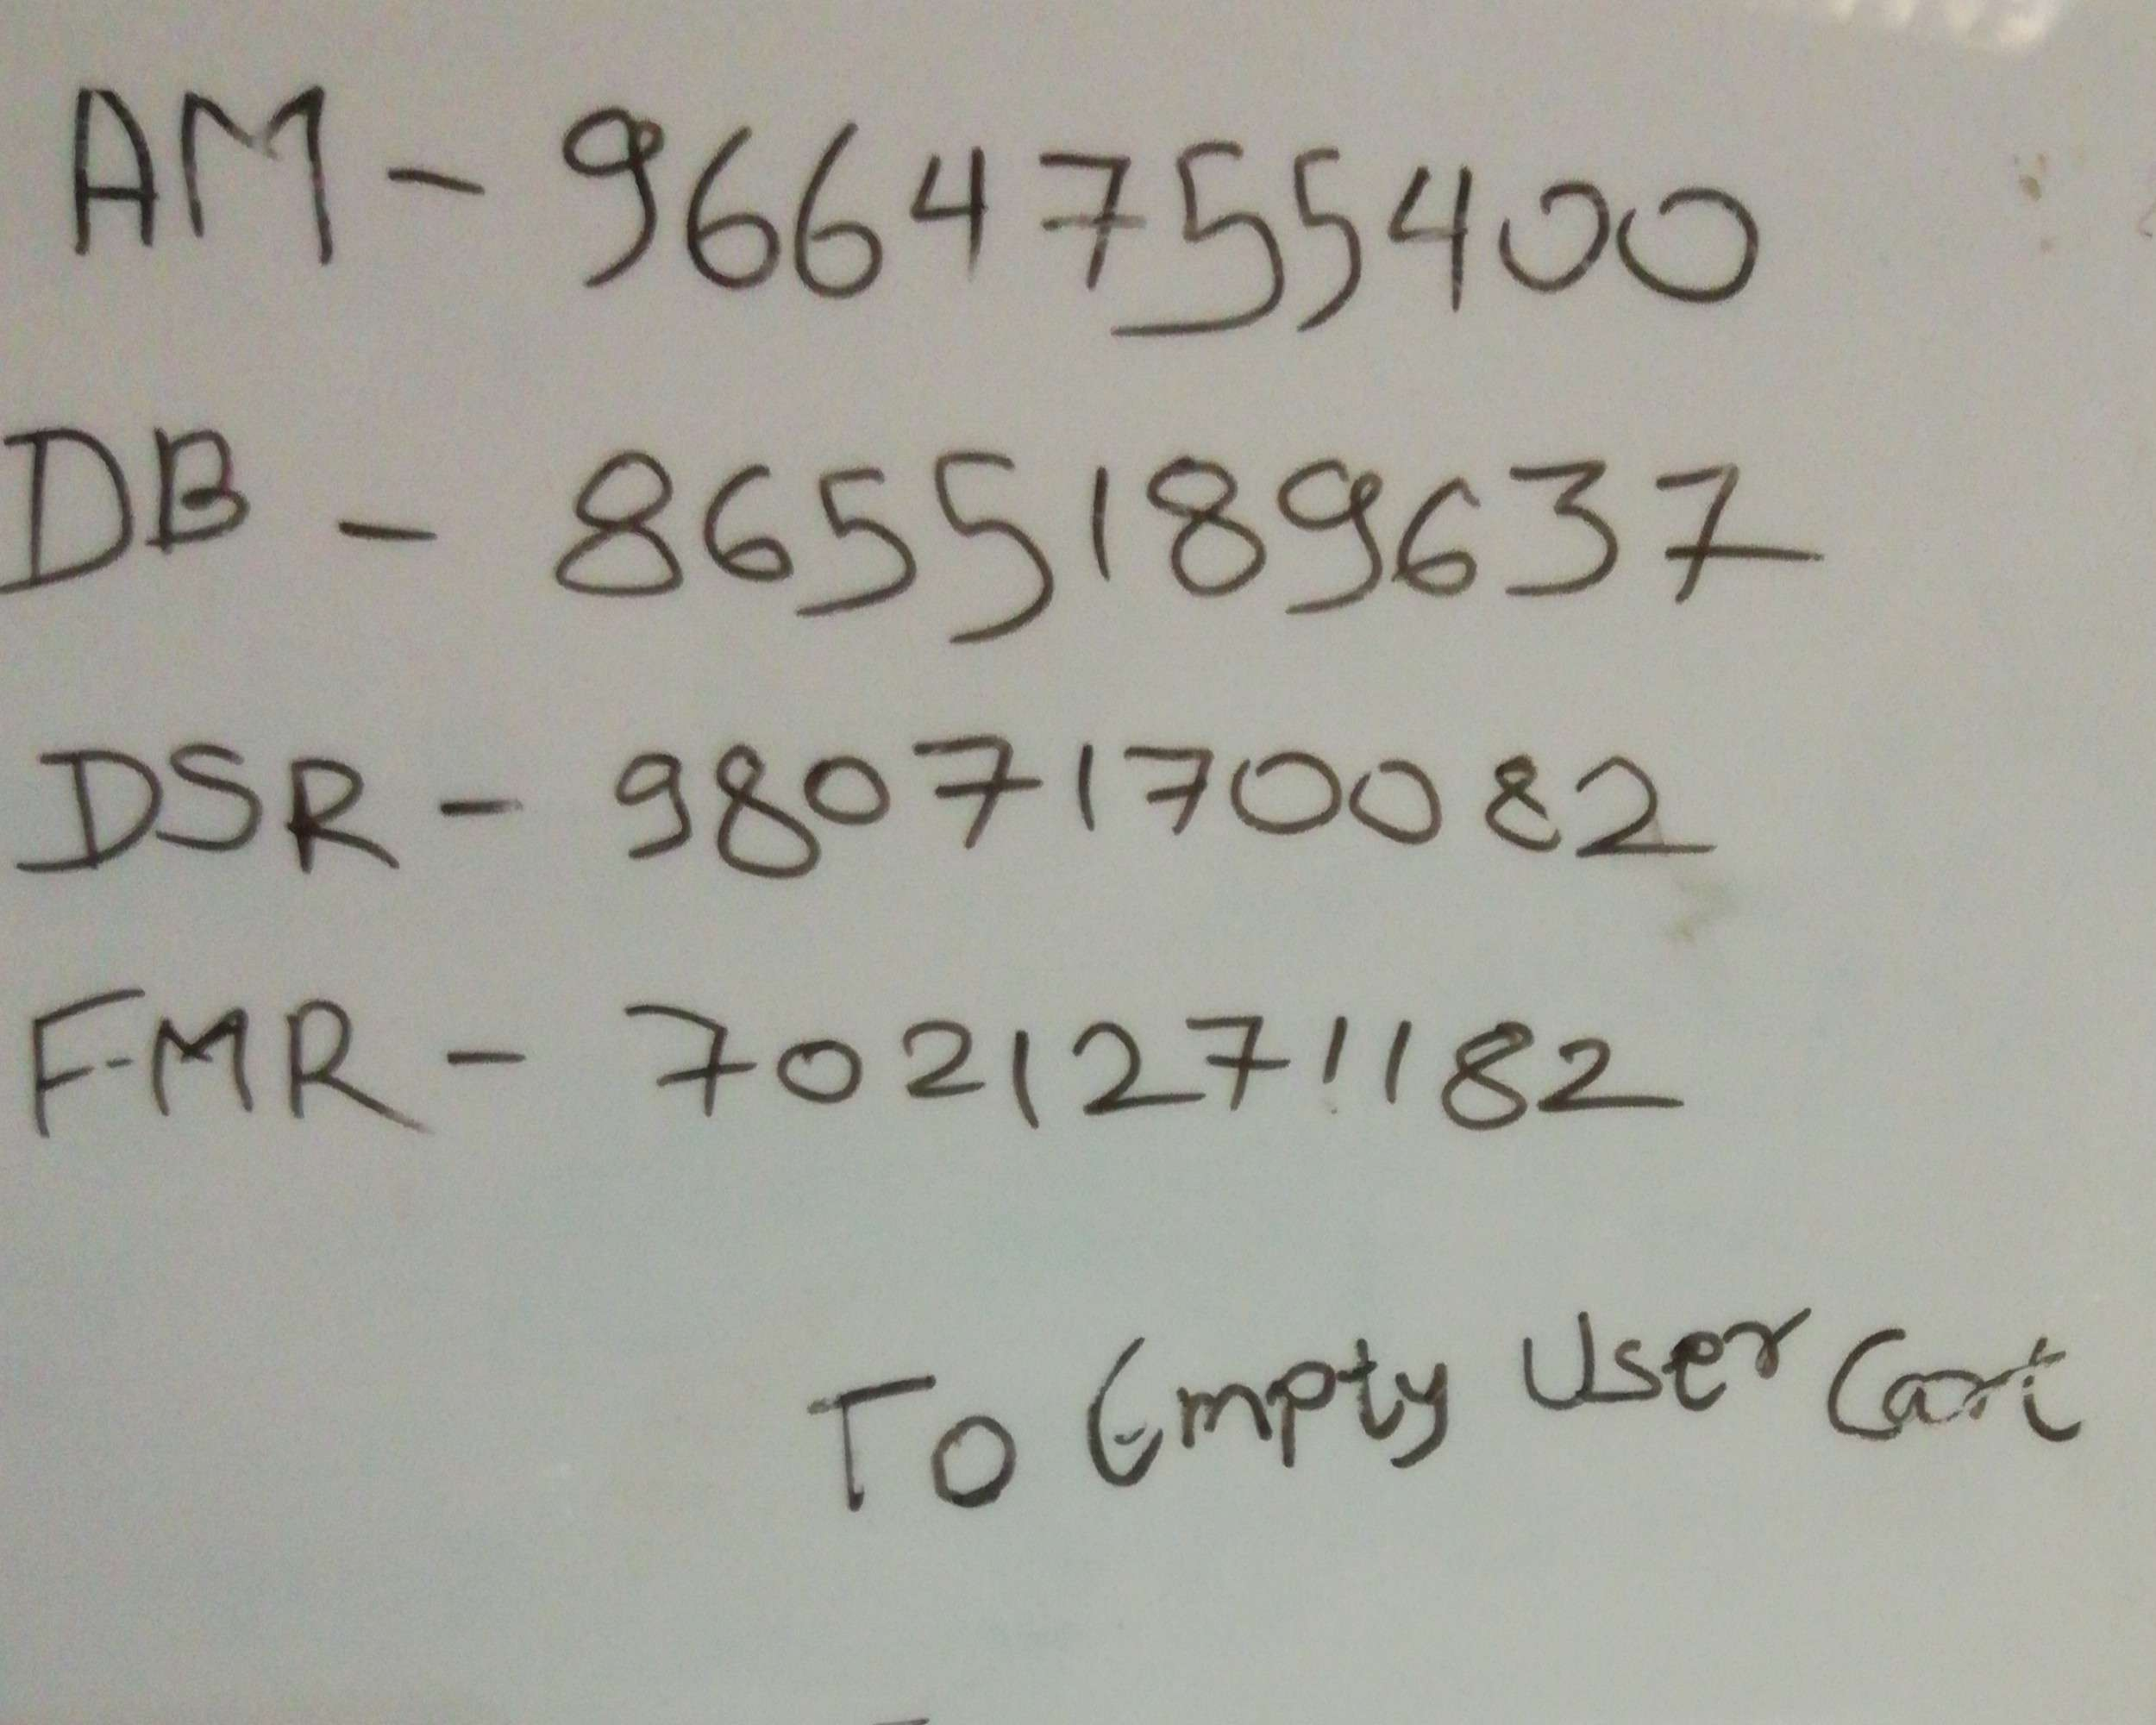 AM - 9664755400
DB - 8655189637
DSR - 9807170082
FMR - 7021271182
To Empty User Cart